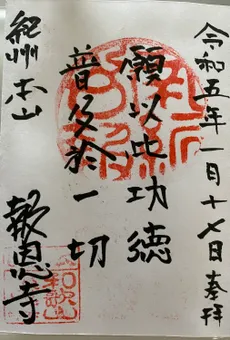 令和五年一月十七日奉拝
願以此功徳
普及於一切
紀州本山
報恩寺
和歌山